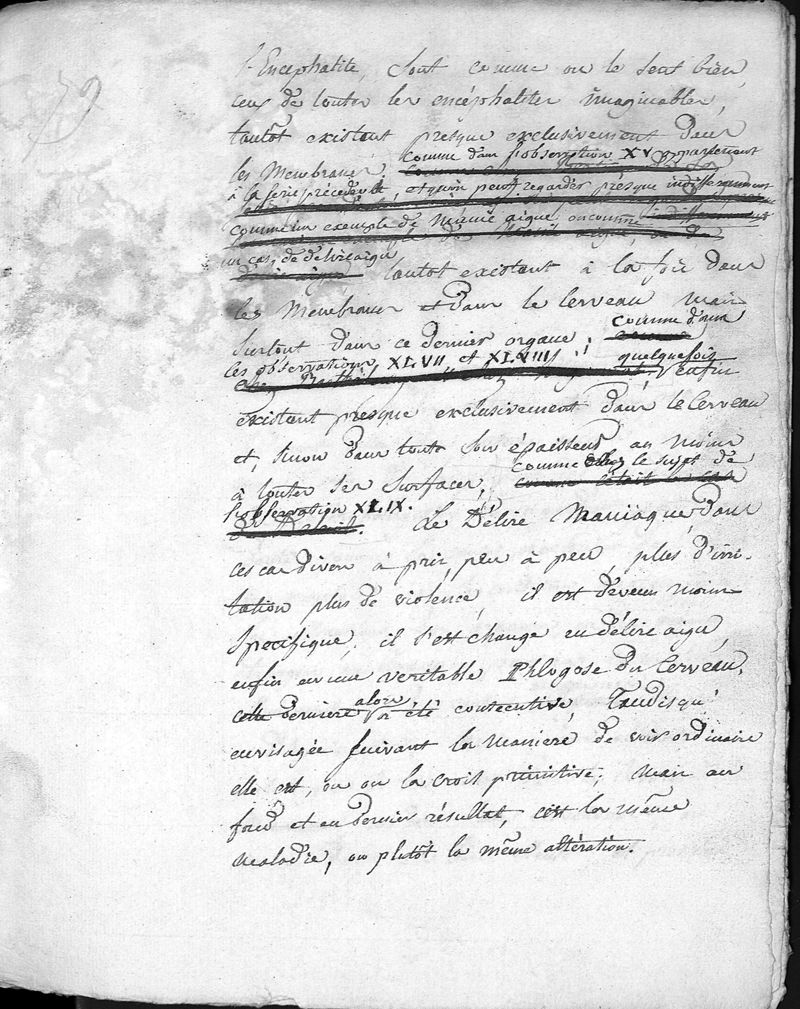 79
l'Encephalite, sont comme on le sent bien,
ceux de toutes les encéphalites imaginables,
tantôt existant presque exclusivement dans
les Membranes, comme dans l'observation XV appartenant
à la serie précédente, et qu'on peut regarder présque indifferemment
comme un exemple de Manie aigue ou comme
un cas de délire aigu, tantôt existant à la fois dans
les Membranes et dans le Cerveau mais
surtout dans ce dernier organe; comme dans
les observations XLVII, et XLVIII; quelquefois enfin
existant presque exclusivement dans le Cerveau
et, sinon dans toute son épaisseur au moins
à toutes ses surfaces, comme chez le sujet de
l'observation XLIX. Le Délire Maniaque, dans
ces cas divers à pris, peu à peu, plus d'irri-
tation plus de violence, il est devenu moins
Specifique, il s'est changé en délire aigu,
enfin en une veritable Phlogose du Cerveau.
cette derniere alors a été consecutive, Tandisqu'
envisagée suivant la maniere de voir ordinaire
elle est, ou on la croit primitive; Mais au
fond et en dernier résultat, c'est la même
Maladie, ou plutôt la même altération.